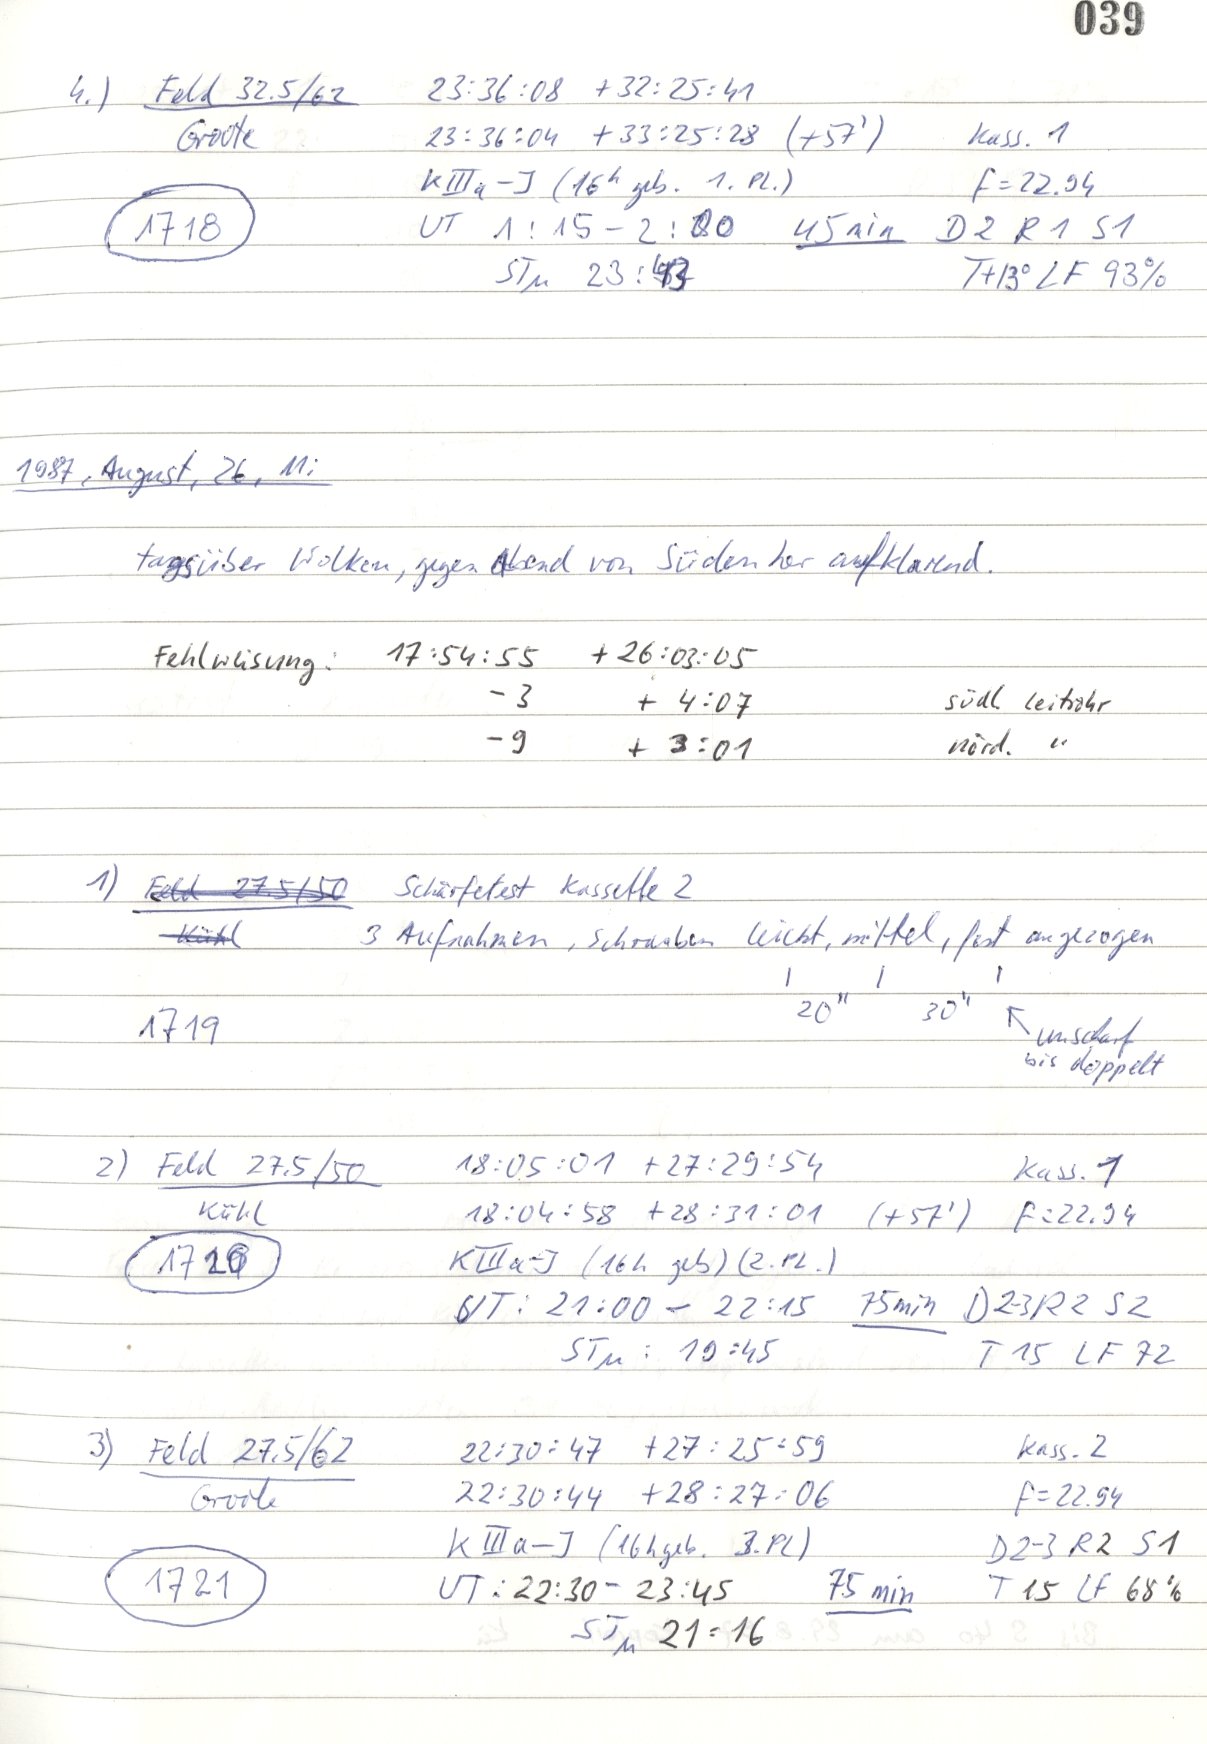 039
4.) Feld 32.5/62 23:36:08 +32:25:41
Groote 23:36:04 +33:25:28 (+57') Kass. 1
KIIIa-J (16h geb. 1. Pl.) F=22.94
1718 UT 1:15-2:00 45min D2 R1 S1
STM 23: T+13° LF 93%
1987, August, 26, Mi
tagsüber Wolken, gegen Abend von Süden her aufklarend.
Fehlweisung: 17:54:55 +26:03:05
-3 + 4:07 südl Leitrohr
-9 + 3:01 nörd. "
1) Feld 27.5/50 Schärfetest Kassette 2
Kühl 3 Aufnahmen, Schrauben leicht, mittel, fest angezogen
20" 30"
1719 unscharf
bis doppelt
2) Feld 27.5/50 18:05:01 +27:29:54 Kass. 1
Kühl 18:04:58 +28:31:01 (+57') F=22.94
1720 KIIIa-J (16h geb) (2. PL.)
UT: 21:00 - 22:15 75min D2-3 R2 S2
STM: 19:45 T 15 LF 72
3) Feld 27.5/62 22:30:47 +27:25:59 Kass. 2
Groote 22:30:44 +28:27:06 F=22.94
KIIIa-J (16h geb. 3. PL) D2-3 R2 S1
1721 UT: 22:30 - 23:45 75 min T 15 LF 68%
STM 21:16